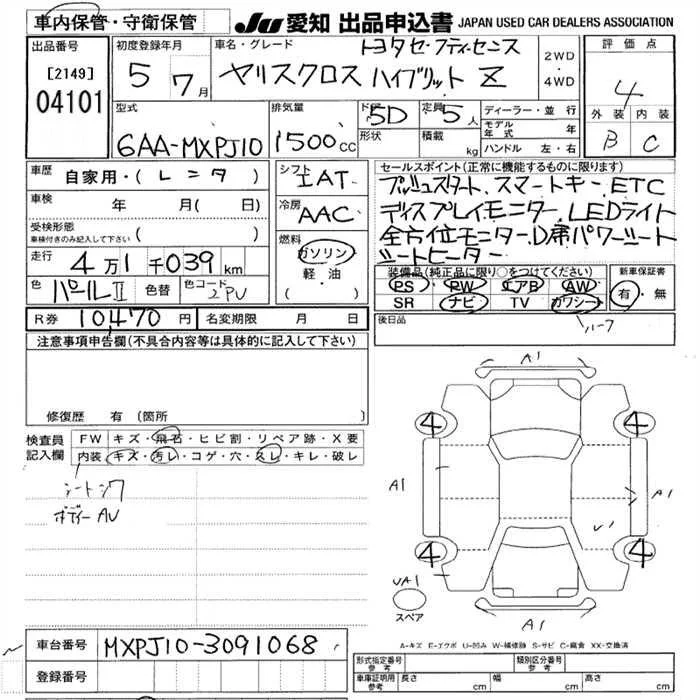 車内保管・守衛保管
JU 愛知 出品申込書 JAPAN USED CAR DEALERS ASSOCIATION
出品番号
[2149]
04101
初度登録年月
5年 7月
車名・グレード
トヨタセーフティセンス
ヤリスクロス ハイブリット Z
2WD
・
4WD
評価点
4
外装 内装
B C
型式
6AA-MXPJ10
排気量
1500cc
ドア
5D
形状
定員 5人
積載 kg
ディーラー・並行
モデル年式 年
ハンドル 左・右
車歴
自家用・(レンタ)
車検 年 月( 日)
受検形態
車検付きのみ記入して下さい ( )
走行 4万1千039km
色 パールII 色替 色コード 2PU
シフト
IAT
冷房
AAC
燃料
ガソリン
軽・油
( )
セールスポイント(正常に機能するものに限ります)
プッシュスタート、スマートキー、ETC
ディスプレイモニター、LEDライト
全方位モニター、D席パワーシート
シートヒーター
装備品(純正品に限り○をつけてください)
PS PW エアB AW
SR ナビ TV カワシート
ハーフ
新車保証書
有・無
後日品
R券 10,470円 名変期限 月 日
注意事項申告欄(不具合内容等は具体的に記入して下さい)
修復歴 有 (箇所
検査員記入欄
FW キズ・飛石・ヒビ割・リペア跡・X要
内装 キズ・汚レ・コゲ・穴・スレ・キレ・破レ
ボディー AU
A1
4 4
A1 A1
U1
4 4
UA1
スペア
A1
A-キズ E-エクボ U-凹み W-補修跡 S-サビ C-腐食 XX-交換済
車台番号 MXPJ10-3091068
登録番号
形式指定番号 参考
類別区分番号 参考
車庫証明用 参考 長さ cm 幅 cm 高さ cm